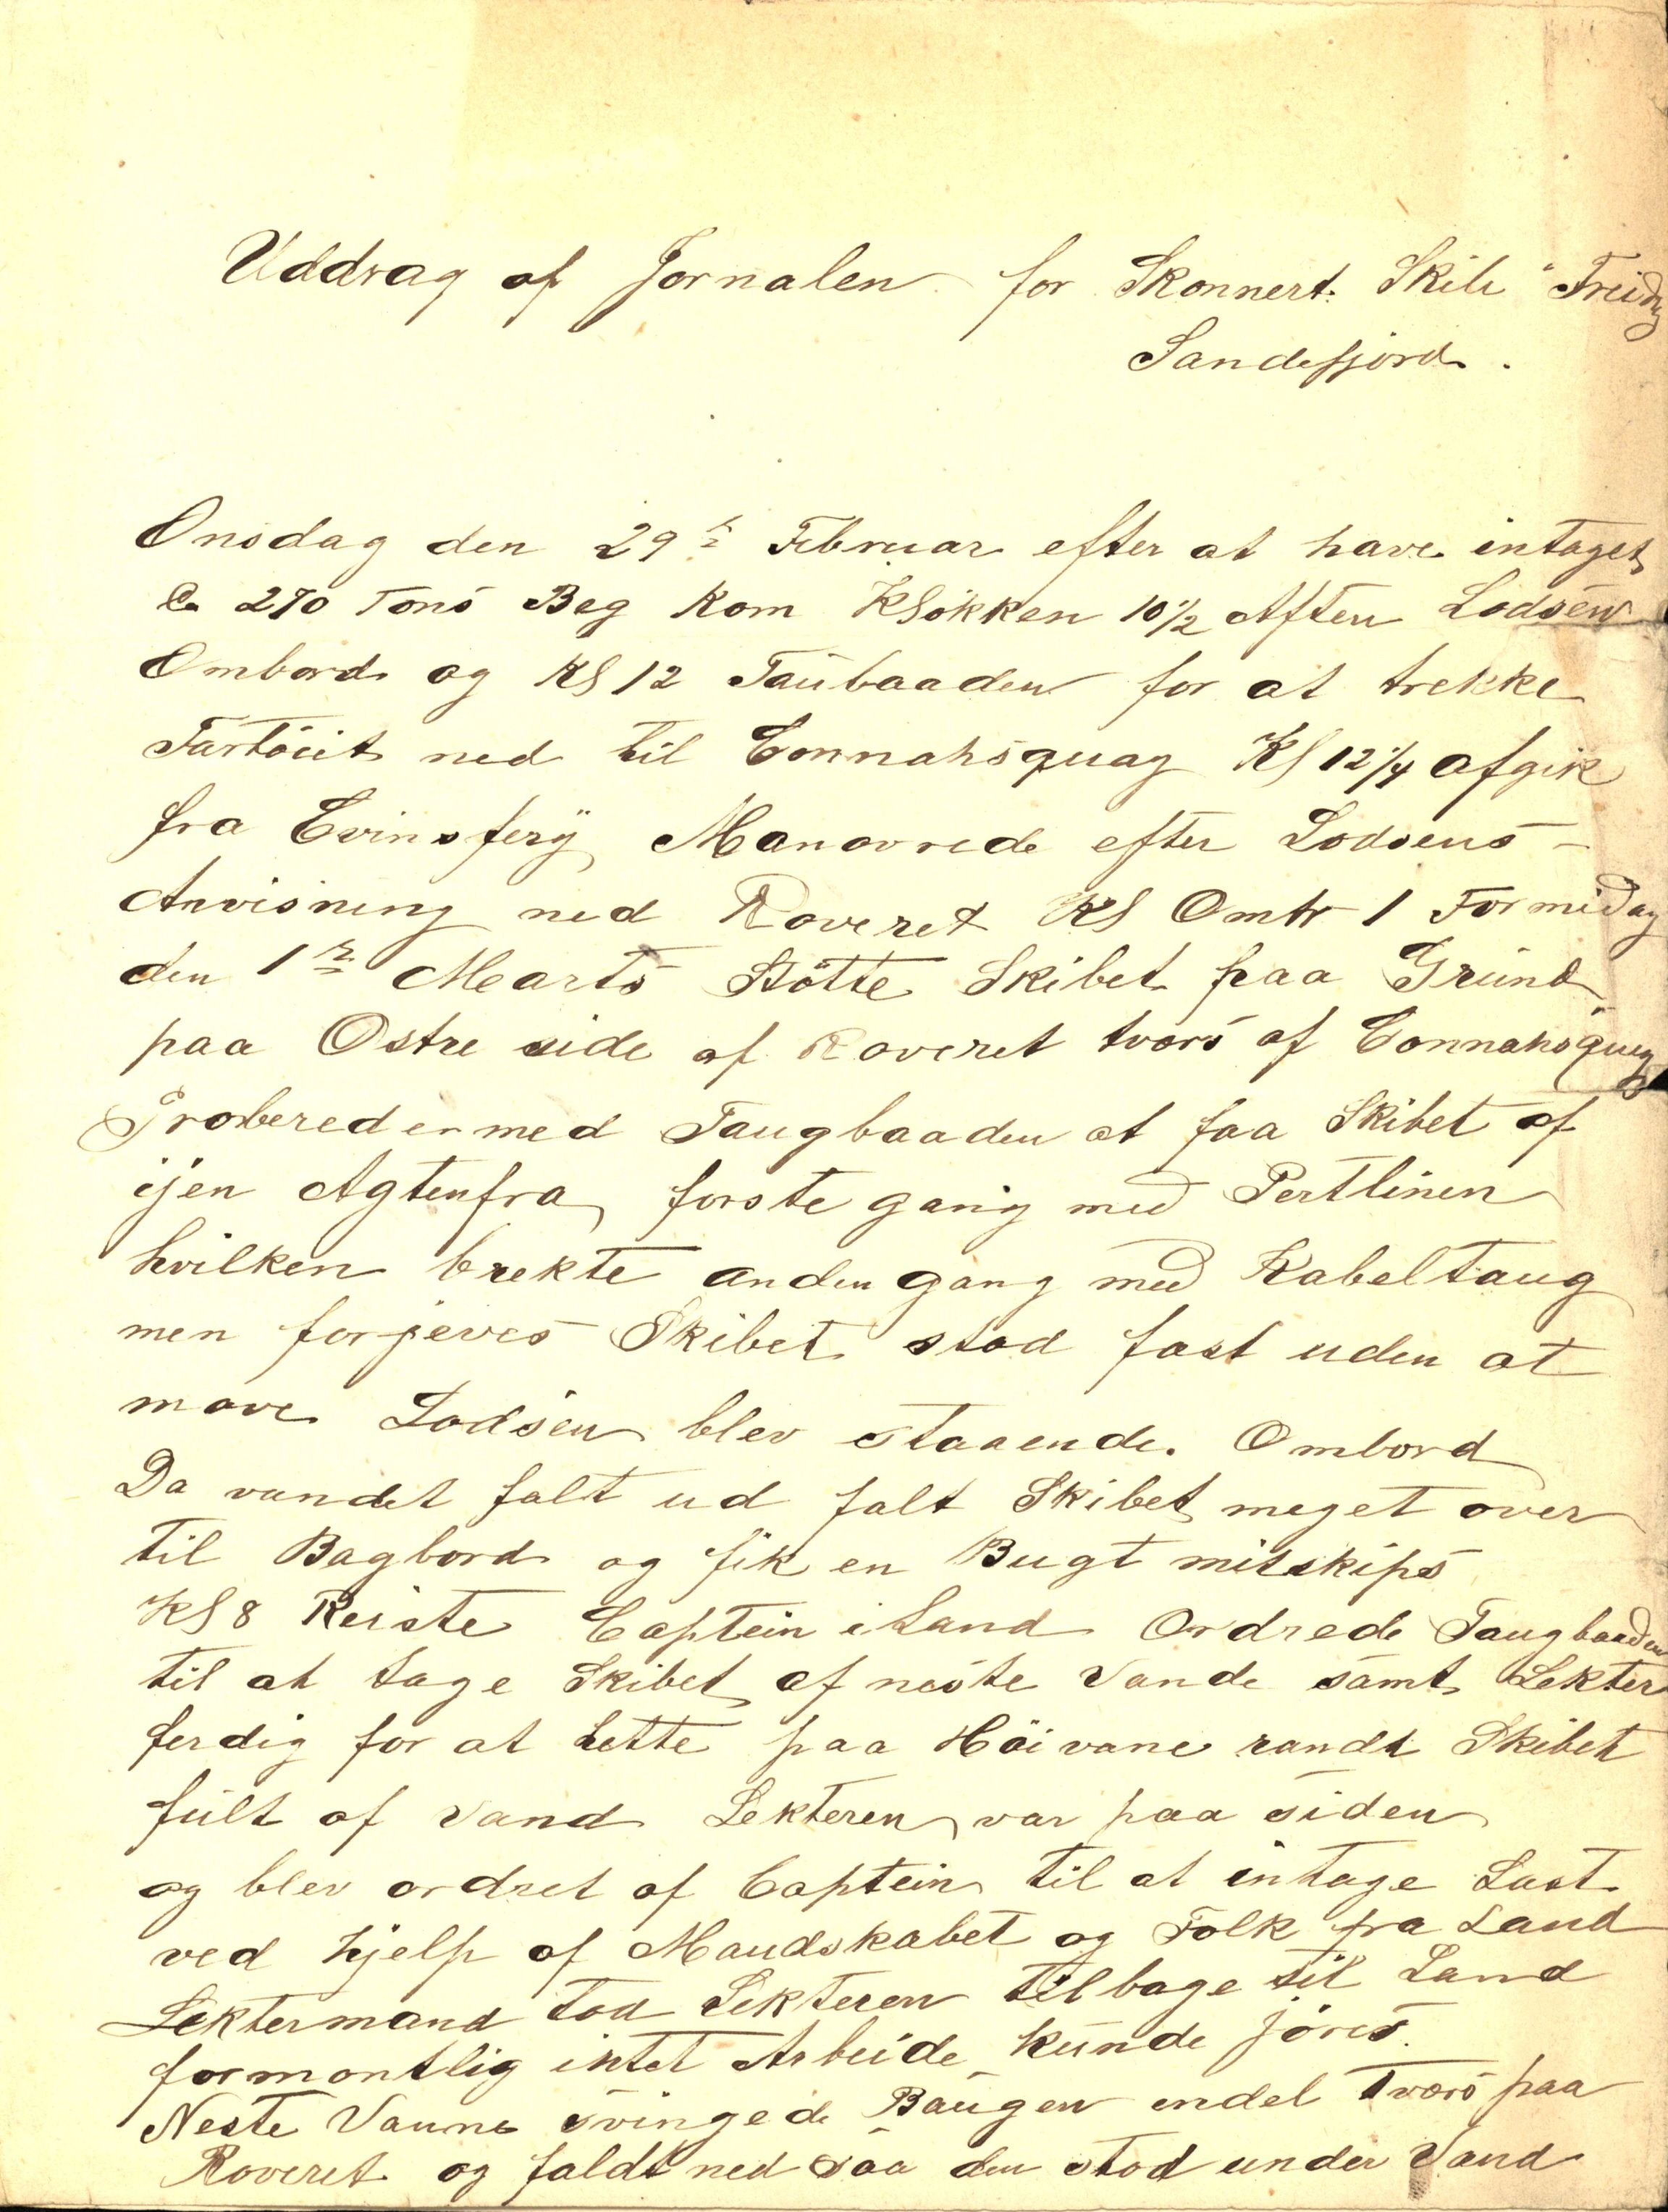 Uddrag af Jornalen for Skonnert. Skib "Freidig
Sandefjord.
Onsdag den 29de Februar efter at have intaget
Ca 270 Tons Beg Kom Klokken 10 1/2 Aften Lodsen
Ombord og Kl 12 Taubaaden for at trekke
Fartöiet ned til Connahsquay Kl 12 1/4 afgik
fra Qvinsfery Manovrede efter Lodsens -
Anvisning ned Roveret Kl Omtr 1 Formidag
den 1ste Marts Stötte Skibet paa Grund
paa Ostre side af Roveret tvers af Connahsquay
Proberede med Taugbaaden at faa Skibet af
ijen Agtenfra forste gang med Pertlinen
hvilken brekte anden gang med Kabeltaug
men forjeves Skibet stod fast uden at
move Lodsen blev staaende. Ombord
Da vandet falt ud falt Skibet meget over
til Bagbord og fik en Bugt mitskips
Kl 8 Reiste Captein i Land Ordrede Taugbaaden
til at tage Skibet af neste Vande samt Lekter
ferdig for at lette paa Höivane randt Skibet
fült af Vand Lekteren var paa siden
og blev ordret af Captein til at intage Last
ved hjelp af Mandskabet og Folk fra Land
Lektermand tod Lekteren tilbage til Land
formontlig intet Arbeide kunde jöres.
Neste Vanne svingede Baugen endel Tvers paa
Roveret og faldt ned saa den stod under Vand